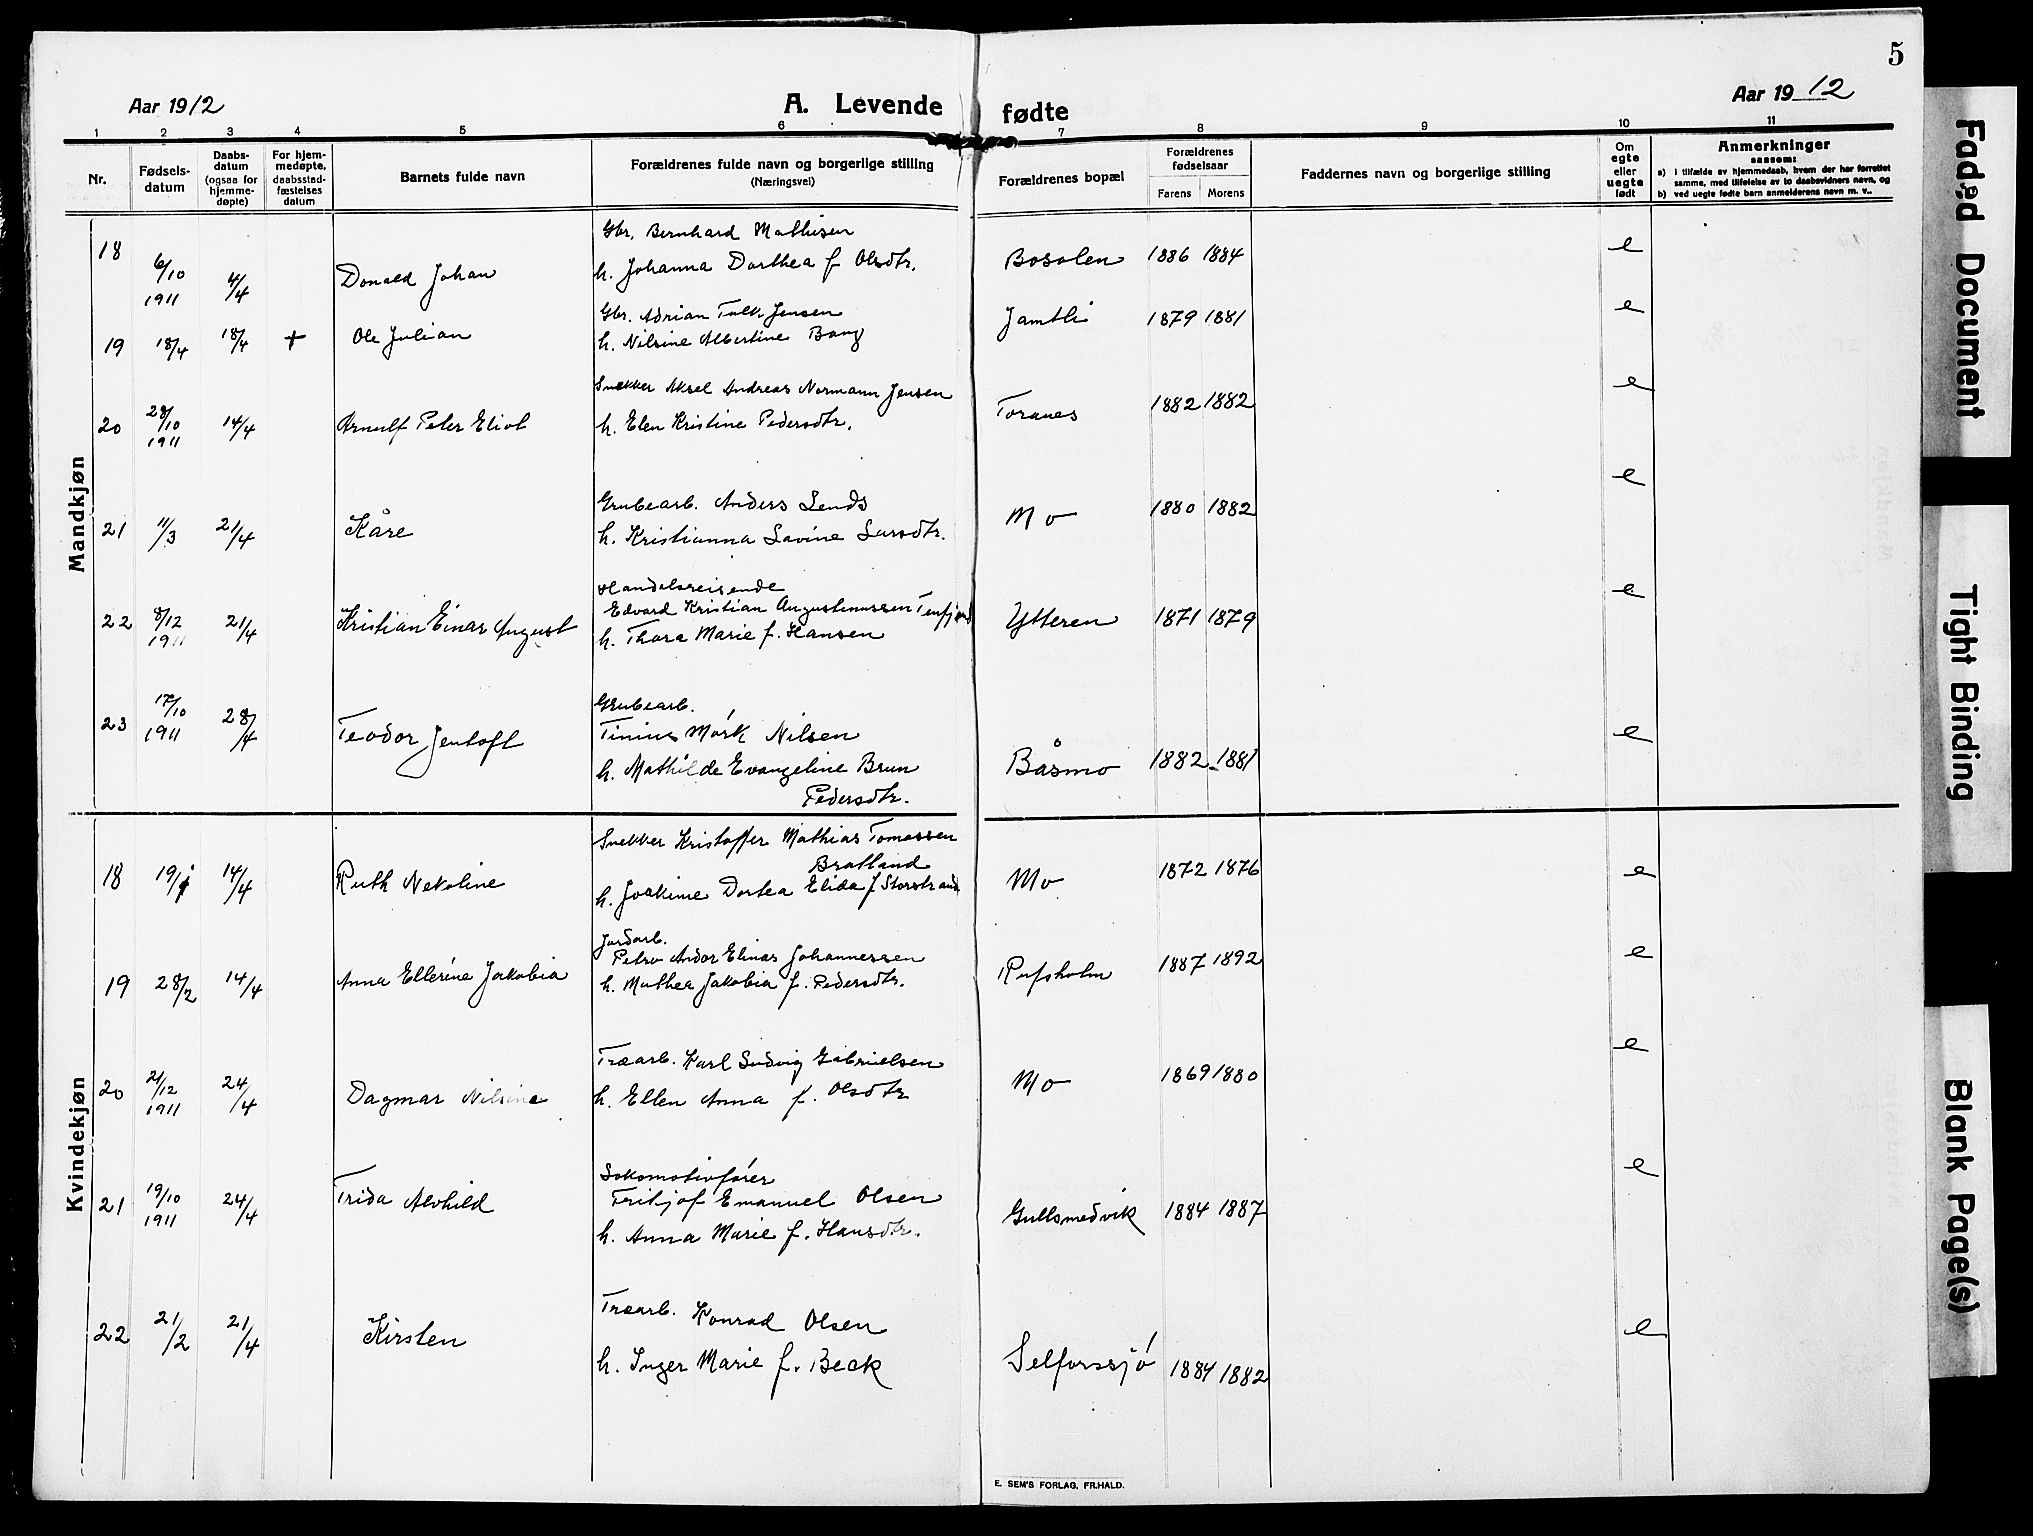 5
Aar 1912
A. Levende fødte
Aar 1912
1 2 3 4 5 6 7 8 9 10 11
Nr.
Fødsels-
datum
Daabs-
datum
(ogsaa for
hjemme-
døpte)
For hjem-
medøpte,
daabsstad-
fæstelses
datum
Barnets fulde navn
Forældrenes fulde navn og borgerlige stilling
(Næringsvei)
Forældrenes bopæl
Forældrenes
fødselsaar
Farens Morens
Faddernes navn og borgerlige stilling
Om
egte
eller
uegte
født
Anmerkninger
saasom:
a) i tilfælde av hjemmedaab, hvem der har forrettet
samme, med tilføielse av to daabsvidners navn, og
b) ved uegte fødte barn anmelderens navn m. v..
Mandkjøn
18 6/10 1911 4/4 Donald Johan
Gbr. Bernhard Mathisen
h. Johanna Dorthea f Olsdtr.
Bosolen 1886 1884 e
19 18/4 18/4 + Ole Julian
Gbr. Adrian Falk Jensen
h. Nilsine Albertine Bang
Jamtli 1879 1881 e
20 28/10 1911 14/4 Arnulf Peter Eliot
Snekker Aksel Andreas Normann Jensen
h. Elen Kristine Pedersdtr.
Toranes 1882 1882 e
21 11/3 21/4 Kåre
Grubearb. Anders Lends
h. Kristianna Lavine Larsdtr.
Mo 1880 1882 e
22 8/12 1911 21/4 Kristian Einar August
Handelsreisende
Edvard Kristian Augustinussen Tenfjord
h. Thora Marie f. Hansen
Ytteren 1871 1879 e
23 17/10 1911 28/4 Teodor Jentoft
Grubearb.
Tinius Mørk Nilsen
h. Mathilde Evangeline Brun
Pedersdtr.
Båsmo 1882 1881 e
Kvindekjøn
18 19/1 14/4 Ruth Nekoline
Snekker Kristoffer Mathias Tomassen
Bratland
h. Joakime Dortea Elida f Storstrand
Mo 1872 1876 e
19 28/2 14/4 Anna Ellerine Jakobia
Jordarb.
Petro Andor Elinas Johannessen
h. Mathea Jakobia f. Pedersdtr.
Rufsholm 1887 1892 e
20 21/12 1911 24/4 Dagmar Nilsine
Træarb. Karl Ludvig Gabrielsen
h. Ellen Anna f. Olsdtr
Mo 1869 1880 e
21 19/10 1911 24/4 Frida Alvhild
Lokomotivfører
Fritjof Emanuel Olsen
h. Anna Marie f. Hansdtr.
Gullsmedvik 1884 1887 e
22 21/2 21/4 Kirsten
Træarb. Konrad Olsen
h. Inger Marie f. Beck
Selforssjø 1884 1882 e
E. SEM'S FORLAG, FR.HALD.
Faded Document
Tight Binding
Blank Page(s)